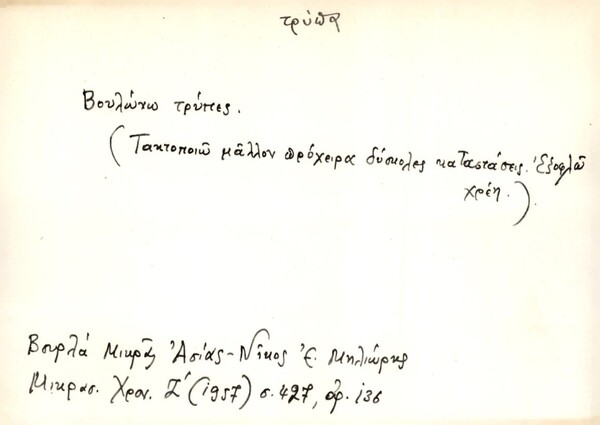 τρύπα
Βουλώνω τρύπες.
(Τακτοποιῶ μᾶλλον πρόχειρα δύσκολες καταστάσεις. Ἐξοφλῶ
χρέη.)
Βουρλά Μικρᾶς Ἀσίας - Νῖκος Ἐ. Μηλιώρης
Μικρασ. Χρον. Ζ´ (1957) σ. 427, ἀρ. 136